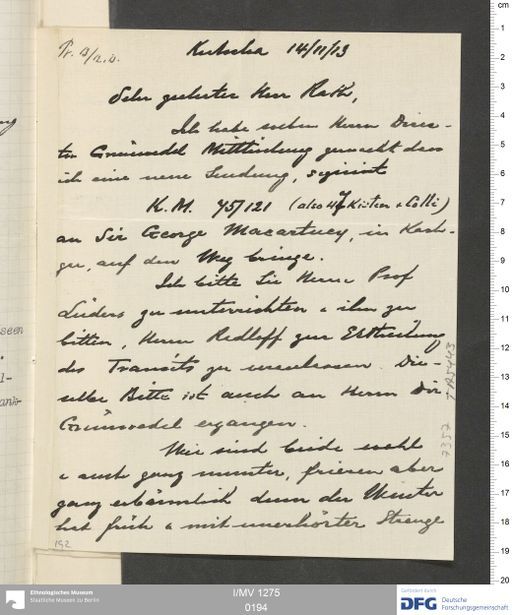 Pr. 13/12.13.
Kutscha 14/11/13
Sehr geehrter Herr Rath,
Ich habe soeben Herrn Direc-
tor Grünwedel Mittheilung gemacht dass
ich eine neue Sendung, signirt
K. M. 75/121 (also 47 Kisten & Colli)
an Sir George Macartney, in Kash-
gar, auf den Weg bringe.
Ich bitte Sie Herrn Prof
Lüders zu unterrichten & ihn zu
bitten, Herrn Redloff zur Ertheilung
des Transits zu veranlassen. Die-
selbe Bitte ist auch an Herrn Dir
Grünwedel ergangen.
Wir sind beide wohl
& auch ganz munter, frieren aber
ganz erbärmlich denn der Winter
hat früh & mit unerhörter Strenge
192
7357
TA 5443
seen
l-
cm
1
2
3
4
5
6
7
8
9
10
11
12
13
14
15
16
17
18
19
20
Ethnologisches Museum
Staatliche Museen zu Berlin
I/MV 1275
0194
Gefördert durch
DFG Deutsche
Forschungsgemeinschaft